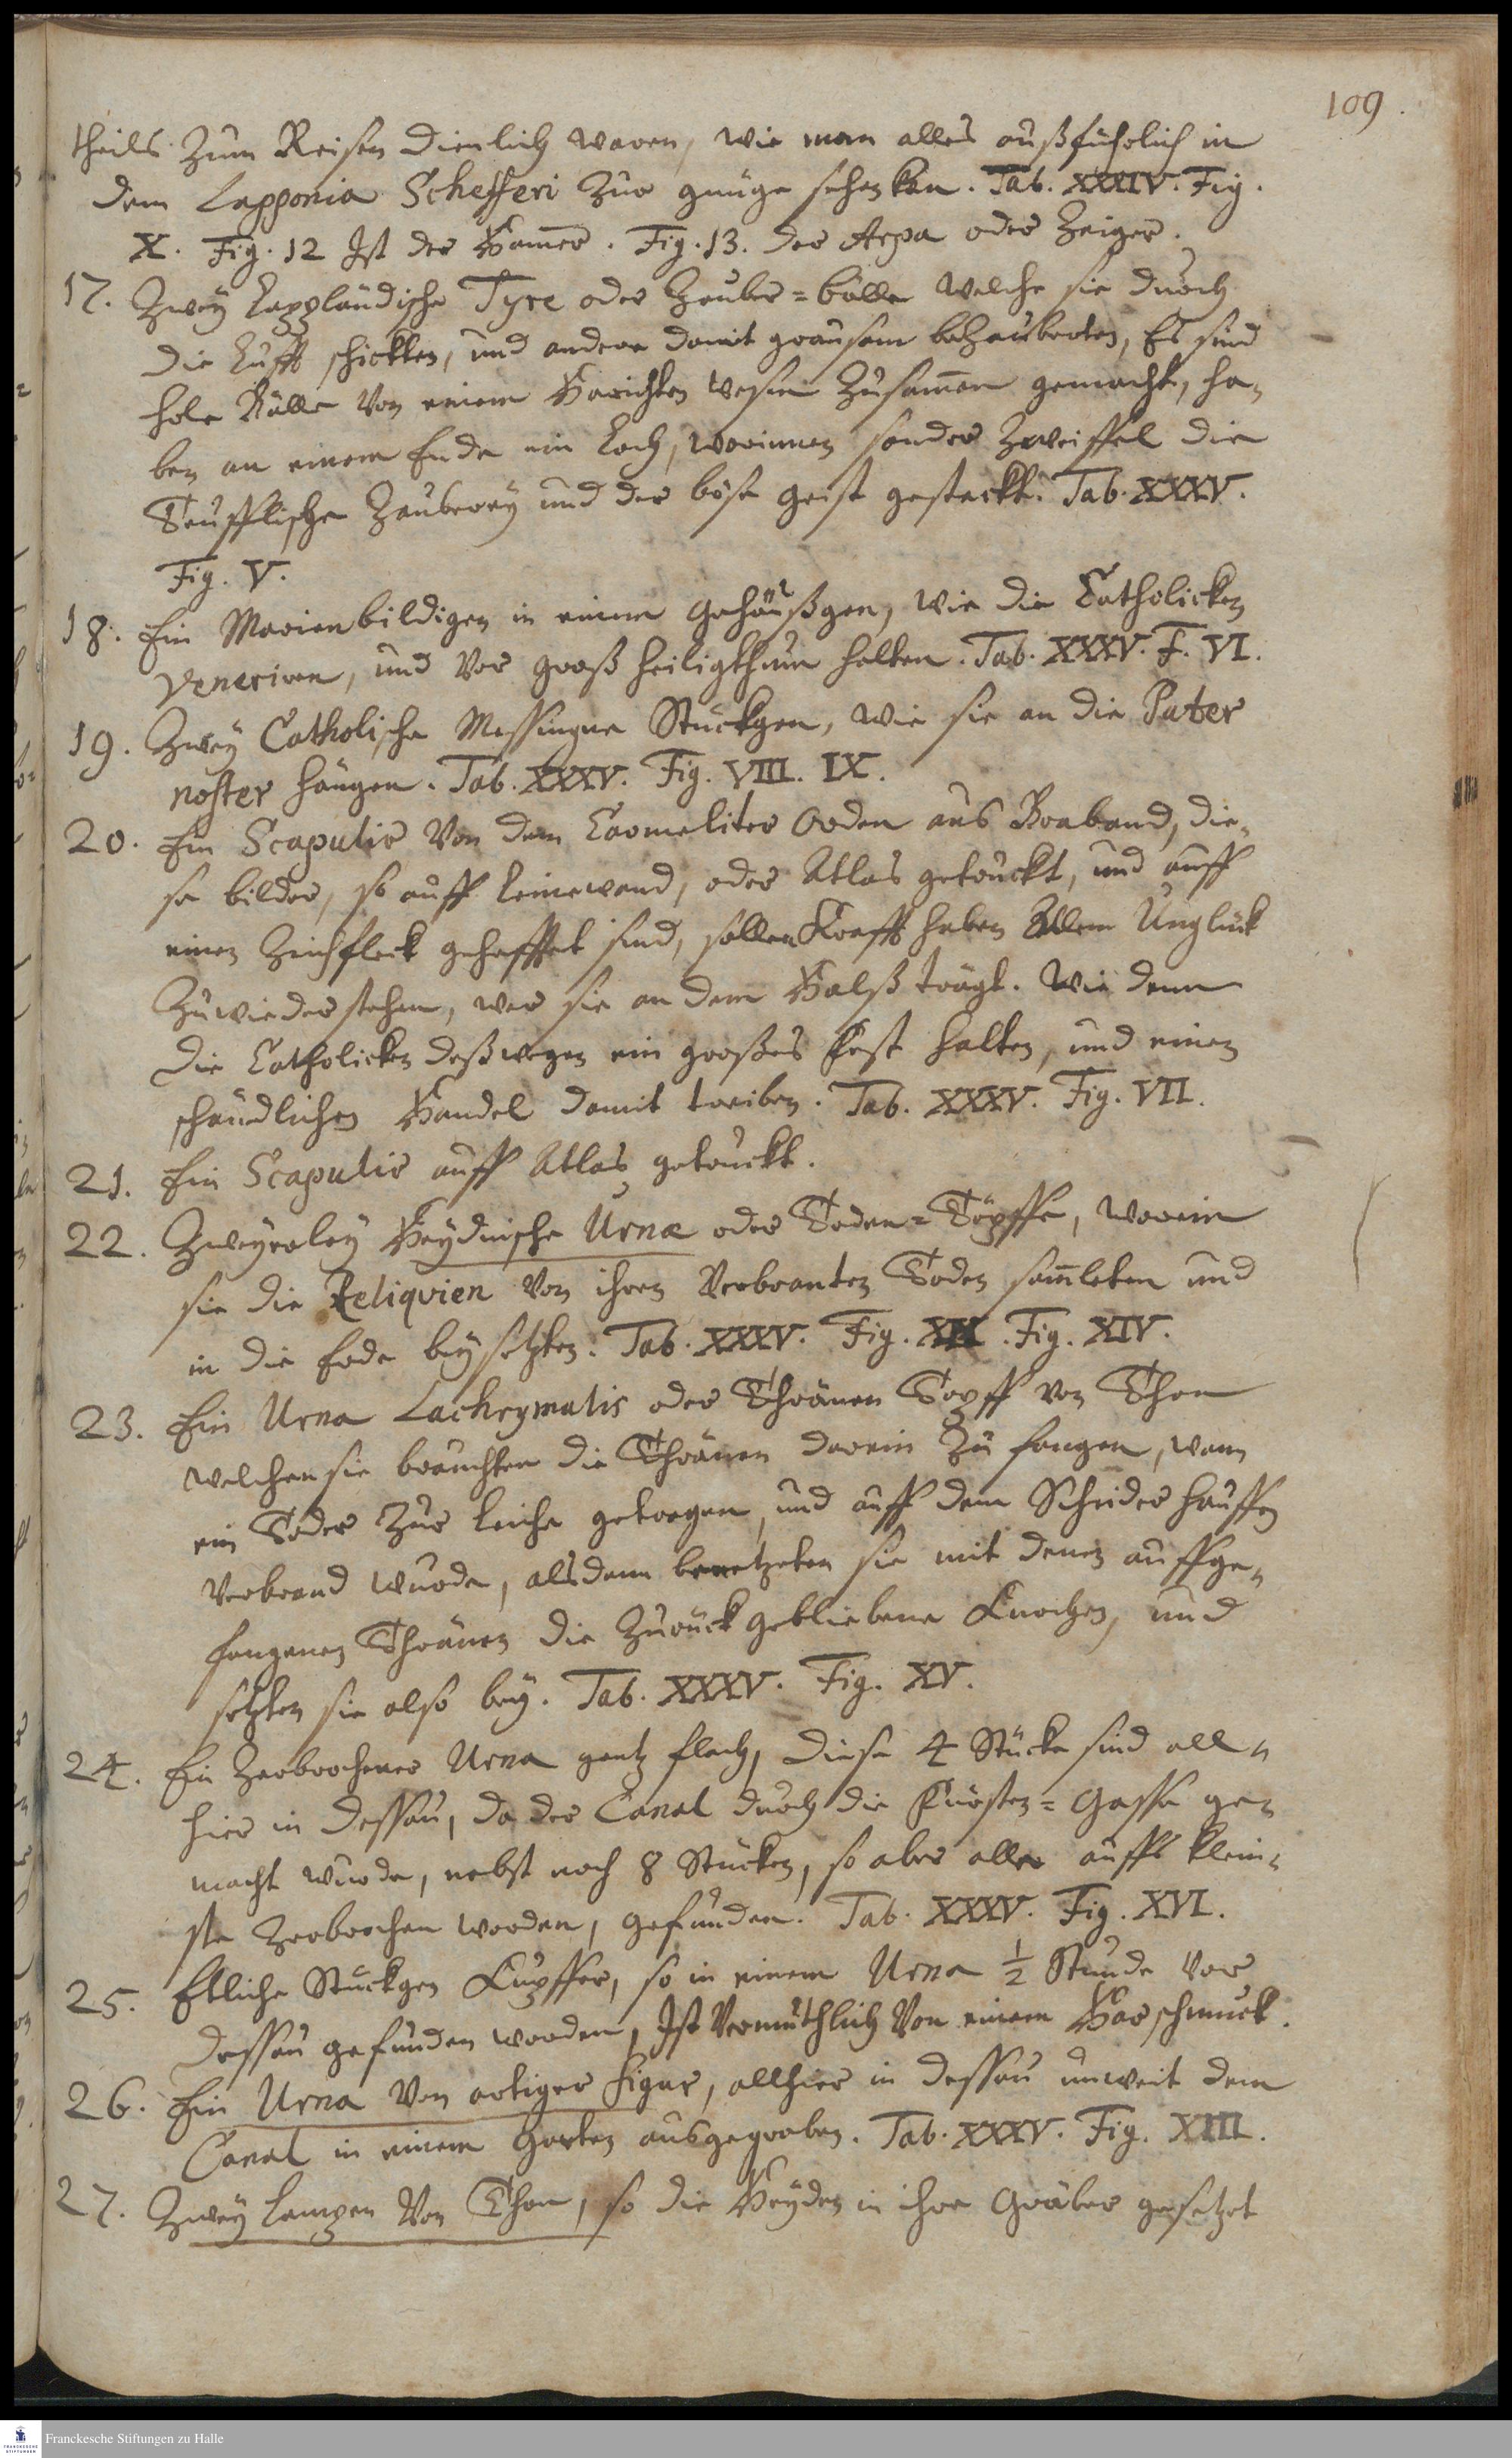 109.
theils zum Reisen dienlich waren, wie man alles außführlich in
dem Lapponia Schefferi zur gnüge sehen kan. Tab. XXXIV. Fig.
X. Fig. 12 Ist der Hamer. Fig. 13. der Arpa oder Zeiger.
17. Zwey Lappländische Tyre oder Zauber=bälle welche sie durch
die Lufft schickten, und andere damit grausam bezauberten, Es sind
hole Bälle von einem Harichten wesen zusammen gemacht, ha„
ben an einem Ende ein Loch, worinnen sonder Zweiffel die
Teufflische Zauberey und der böse geist gesteckt. Tab. XXXV.
Fig. V.
18. Ein Marienbildigen in einem Gehäußgen, wie die Catholicken
veneriren, und vor groß heiligthum halten. Tab. XXXV. F. VI.
19. Zwey Catholische Messingne Stückgen, wie sie an die Pater
noster hängen. Tab. XXXV. Fig. VIII. IX.
20. Ein Scapulir von dem Carmeliter Orden aus Braband, die„
se bilder, so auff Leinewand, oder Atlas getruckt, und auff
einen gehefftet sind, sollen Krafft haben Allem Unglück
zuwiederstehen, wer sie an dem Halß trägt. Wie denn
die Catholicken deßwegen ein großes Fest halten, und einen
schändlichen Handel damit treiben. Tab. XXXV. Fig. VII.
21. Ein Scapulir auff Atlas getruckt.
22. Zweyerley Heydnische Urnæ oder Toden=Töpffe, worein
sie die Reliqvien von ihren verbranten Toden samleten und
in die Erde beysetzten. Tab. XXXV. Fig. . Fig. XIV.
23. Ein Urna Lachrymalis oder Thränen Topff von Thon
welchen sie brauchten die Thränen darein zu fangen, wenn
ein Toder zur Leiche getragen, und auff dem Scheider hauffen
verbrand wurde, alsdenn benetzeten sie mit denen auffge„
fangenen Thränen die zurückgebliebene Knochen, und
setzten sie also bey. Tab. XXXV. Fig. XV.
24. Ein Zerbrochener Urna gantz flach, diese 4 Stücke sind all„
hier in Dessau, da der Canal durch die Fürsten=Gasse ge„
macht wurde, nebst noch 8 Stücken, so aber alle auffs klein„
ste zerbrochen worden, gefunden. Tab. XXXV. Fig. XVI.
25. Etliche Stückgen Kupffer, so in einem Urna ½ Stunde vor
Dessau gefunden worden, Ist Vermuthlich Von einem Harschmuck.
26. Ein Urna von artiger Figur, allhier in Dessau unweit dem
Canal in einem Garten ausgegraben. Tab. XXXV. Fig. XIII.
27. Zwey Lampen von Thon, so die Heyden in ihre Gräber gesetzet
Franckesche Stiftungen zu Halle